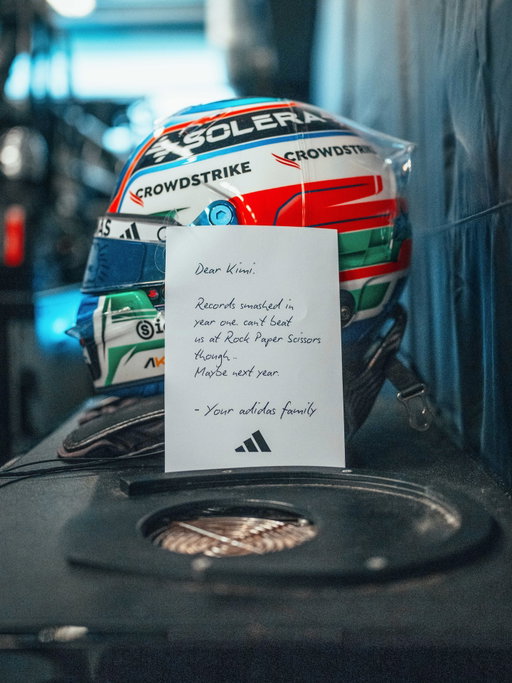 SOLERA
CROWDSTRIKE
CROWDSTRIKE
Dear Kimi.
Records smashed in
year one. can't beat
us at Rock Paper Scissors
though..
Maybe next year.
- Your adidas family